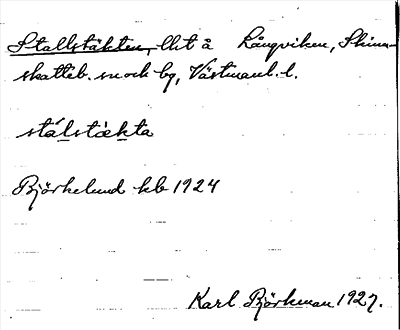 Stallstäkten, llit å Långviken, Skinn-
skatteb. sn och bg, Västmanl. l.
stálstäkta
Björkelund kb 1924
Karl Björkman 1927.